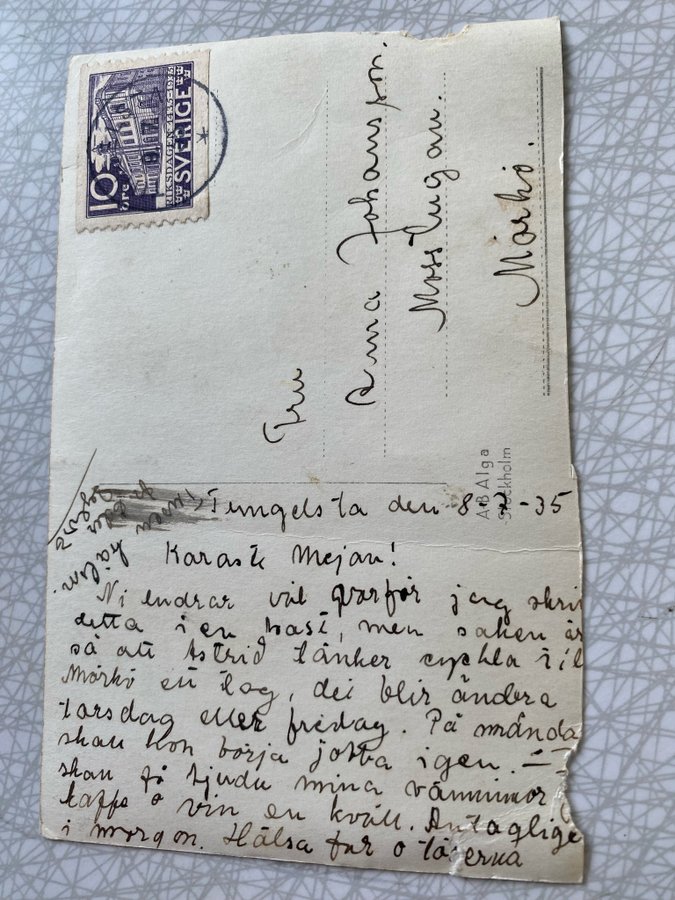 10 öre
RIKSDAGEN 1435-1935
SVERIGE
Fru
Anna Johansson.
Mosstugan.
Mörkö.
AB Alga
Stockholm
Tungelsta den 8 -35
Käraste Mejan!
Ni undrar väl varför jag skri
detta i en hast, men saken är
så att Astrid tänker cykla till
Mörkö ett tag, det blir ändera
torsdag eller fredag. På månda
skall hon börja jobba igen. —
skall få bjuda mina väninnor
kaffe o vin en kväll. Antaglige
i morgon. Hälsa far o töserna